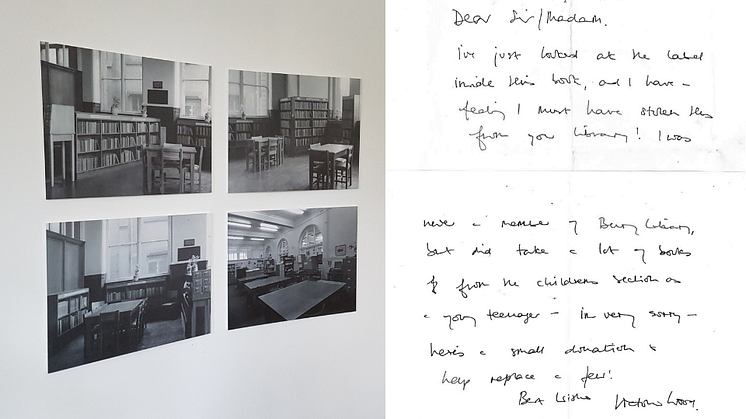 Dear Sir/Madam.
I've just looked at the label
inside this book, and I have a
feeling I must have stolen this
from your Library! I was
never a member of Bury Library,
but did take a lot of books
from the childrens section as
a young teenager - im very sorry -
heres a small donation to
help replace a few!
Best Wishes